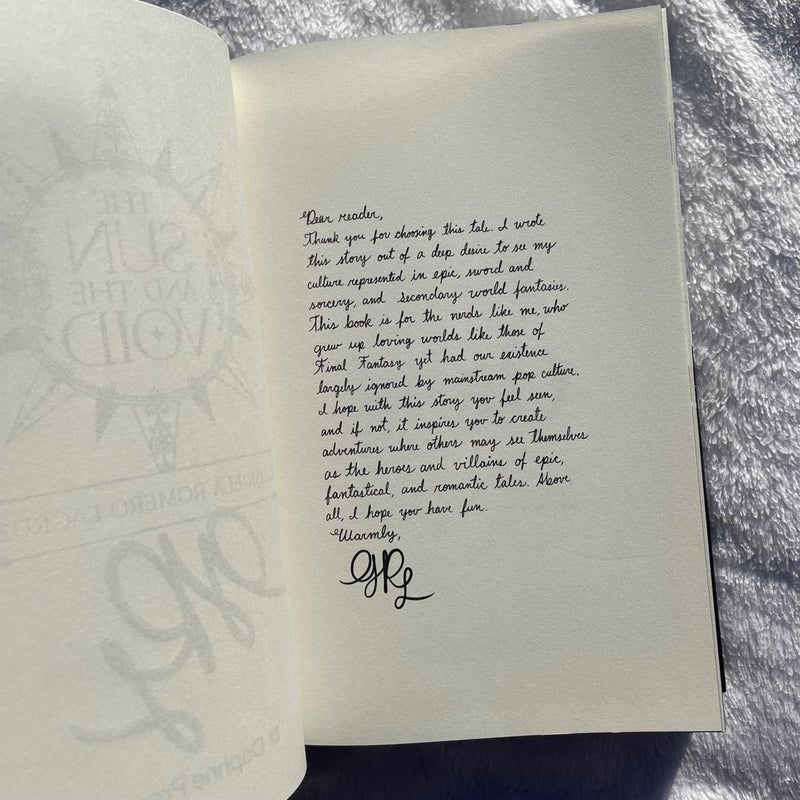 THE
SUN
AND THE
VOID
ROMERO
GRL
Dear reader,
Thank you for choosing this tale. I wrote
this story out of a deep desire to see my
culture represented in epic, sword and
sorcery, and secondary world fantasies.
This book is for the nerds like me, who
grew up loving worlds like those of
Final Fantasy yet had our existence
largely ignored by mainstream pop culture.
I hope with this story you feel seen,
and if not, it inspires you to create
adventures where others may see themselves
as the heroes and villains of epic,
fantastical, and romantic tales. Above
all, I hope you have fun.
Warmly,
GRL